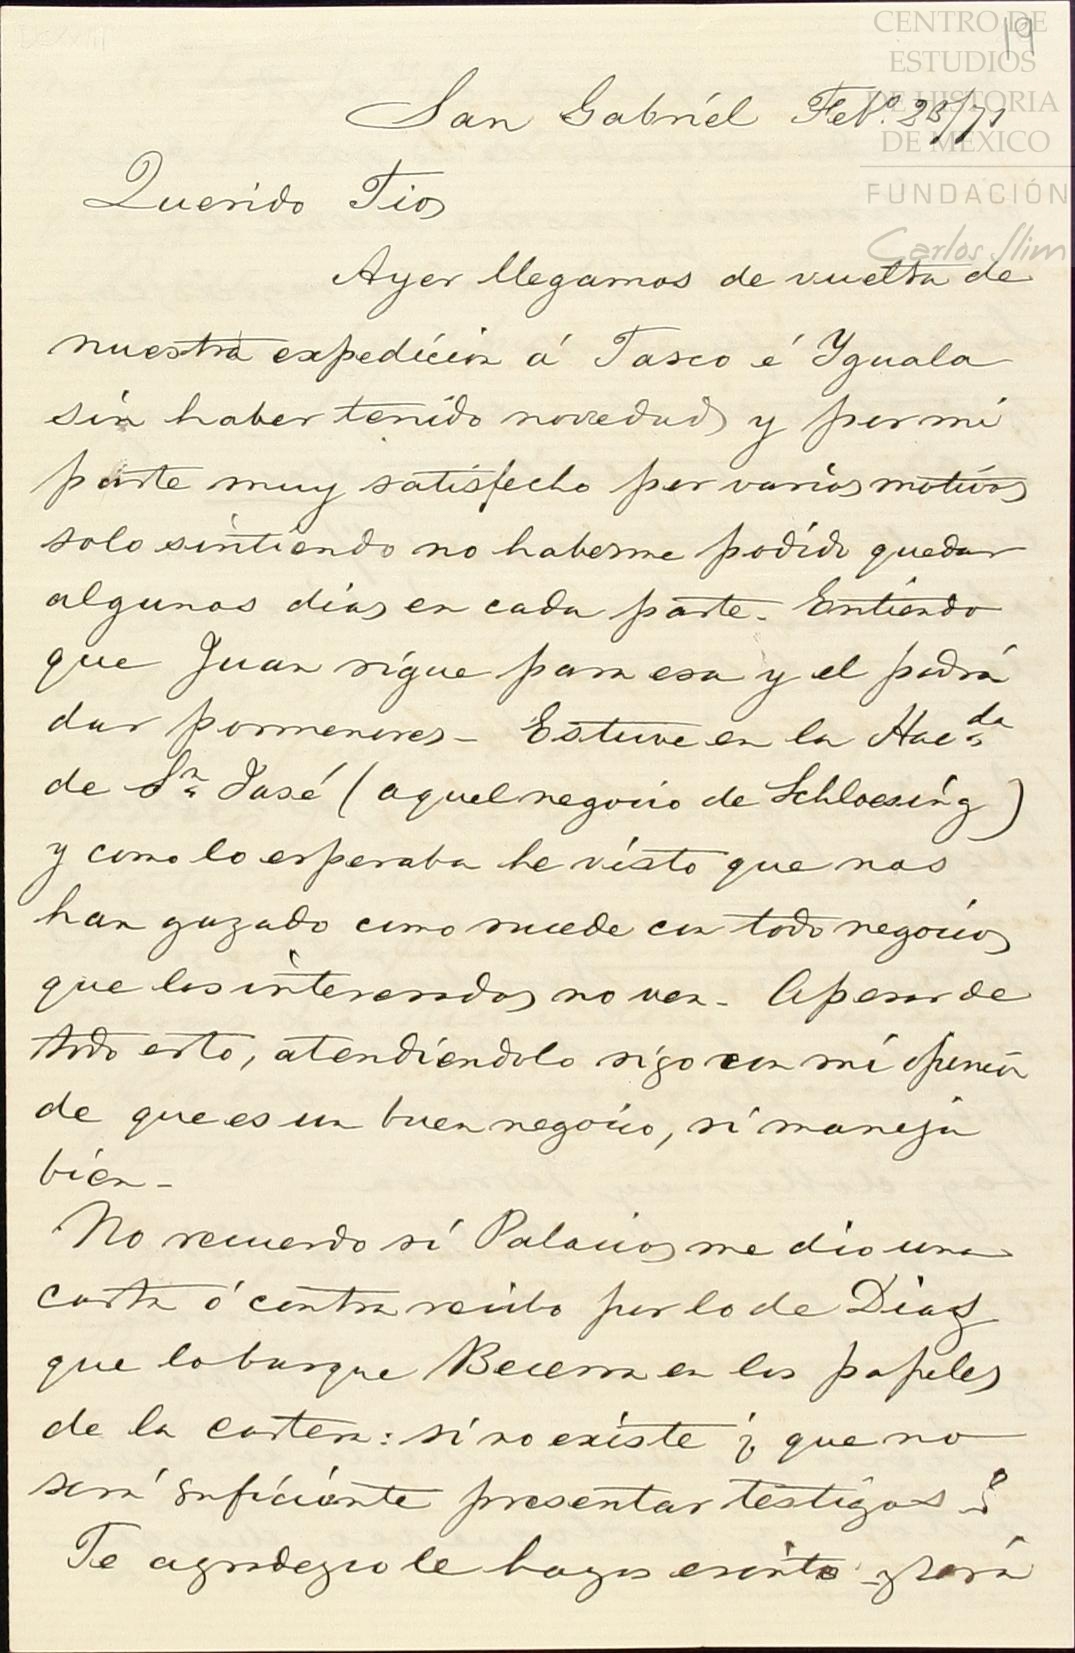 19
CENTRO DE
ESTUDIOS
DE HISTORIA
DE MÉXICO
FUNDACIÓN
Carlos Slim
San Gabriél Febº. 28/71
Querido Tio
Ayer llegamos de vuelta de
nuestra expedicion á Tasco é Yguala
sin haber tenido novedad y por mi
parte muy satisfecho por varios motivos
solo sintiendo no haberme podido quedar
algunos dias en cada parte. Entiendo
que Juan sigue para esa y el podrá
dar pormenores – Estuve en la Hacda
de Sn José (aquel negocio de Schloesing)
y como lo esperaba he visto que nos
han gozado como sucede con todo negocio
que los interesados no ven – Apesar de
todo esto, atendiendolo sigo con mi opinion
de que es un buen negocio, si maneja
bien –
No recuerdo si Palacios me dio una
carta ó contra recibo por lo de Diaz
que lo busque Becerra en los papeles
de la cartera: si no existe ¿ que no
será suficiente presentar testigos ?
Te agradezco le hagas esinto y será